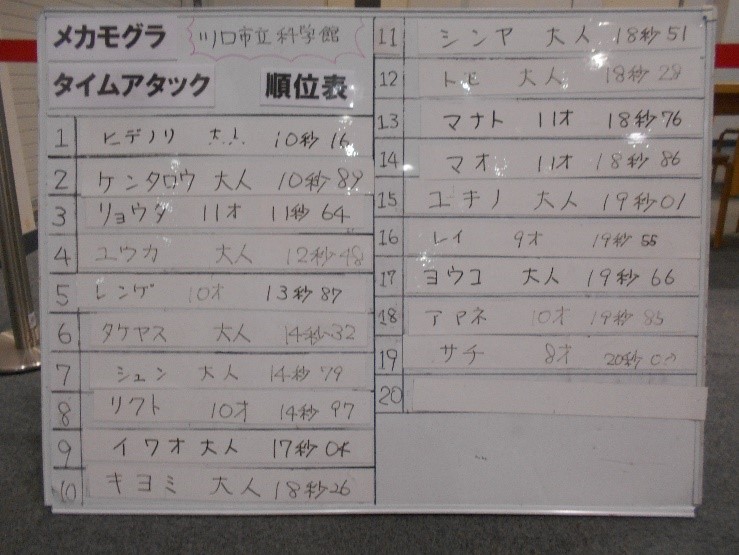 メカモグラ
川口市立科学館
タイムアタック 順位表
1 ヒデノリ 大人 10秒16
2 ケンタロウ 大人 10秒89
3 リョウタ 11才 11秒64
4 ユウカ 大人 12秒48
5 レンゲ 10才 13秒87
6 タケヤス 大人 14秒32
7 シュン 大人 14秒79
8 リクト 10才 14秒97
9 イワオ 大人 17秒04
10 キヨミ 大人 18秒26
11 シンヤ 大人 18秒51
12 大人 18秒28
13 マナト 11才 18秒76
14 マオ 11才 18秒86
15 ユキノ 大人 19秒01
16 レイ 9才 19秒55
17 ヨウコ 大人 19秒66
18 アヤネ 10才 19秒85
19 サチ 8才 20秒
20